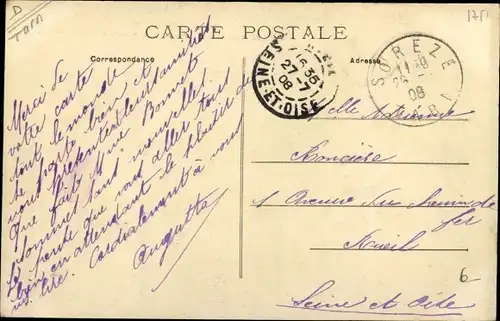 D
TARN
1751
CARTE POSTALE
Correspondance
Adresse
SEINE-ET-OISE
16 35
27 -7
08
SOREZE
08
Merci de
votre carte
tout le monde
se porte bien et
vous présente leurs amitiés
Que fait Mme Bonnet
sommes sans nouvelles.
je pense que vous allez tous
bien en attendant le plaisir de
vs lire. Cordialement à vous
Augusta
Mlle
1 Avenue du Chemin de
fer
Rueil
Seine et Oise
6